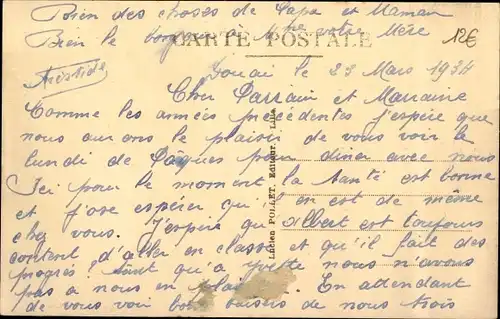 bien des choses de Papa et Maman
Bien le bonjour à Mme votre Mère
CARTE POSTALE
12€
Aristide
Douai le 23 Mars 1934
Cher Parrain et Marraine
Comme les années précédentes j'espère que
nous aurons le plaisir de vous voir le
lundi de Pâques pour diner avec nous
Ici pour le moment la santé est bonne
et j'ose espérer qu'il en est de même
chez vous. J'espère qu'albert est toujours
content d'aller en classe et qu'il fait des
progrès! tant qu'a yvette nous n'avons
pas a nous en En attendant
de vous voir bons baisers de nous trois
Lucien POLLET, Editeur, Lille